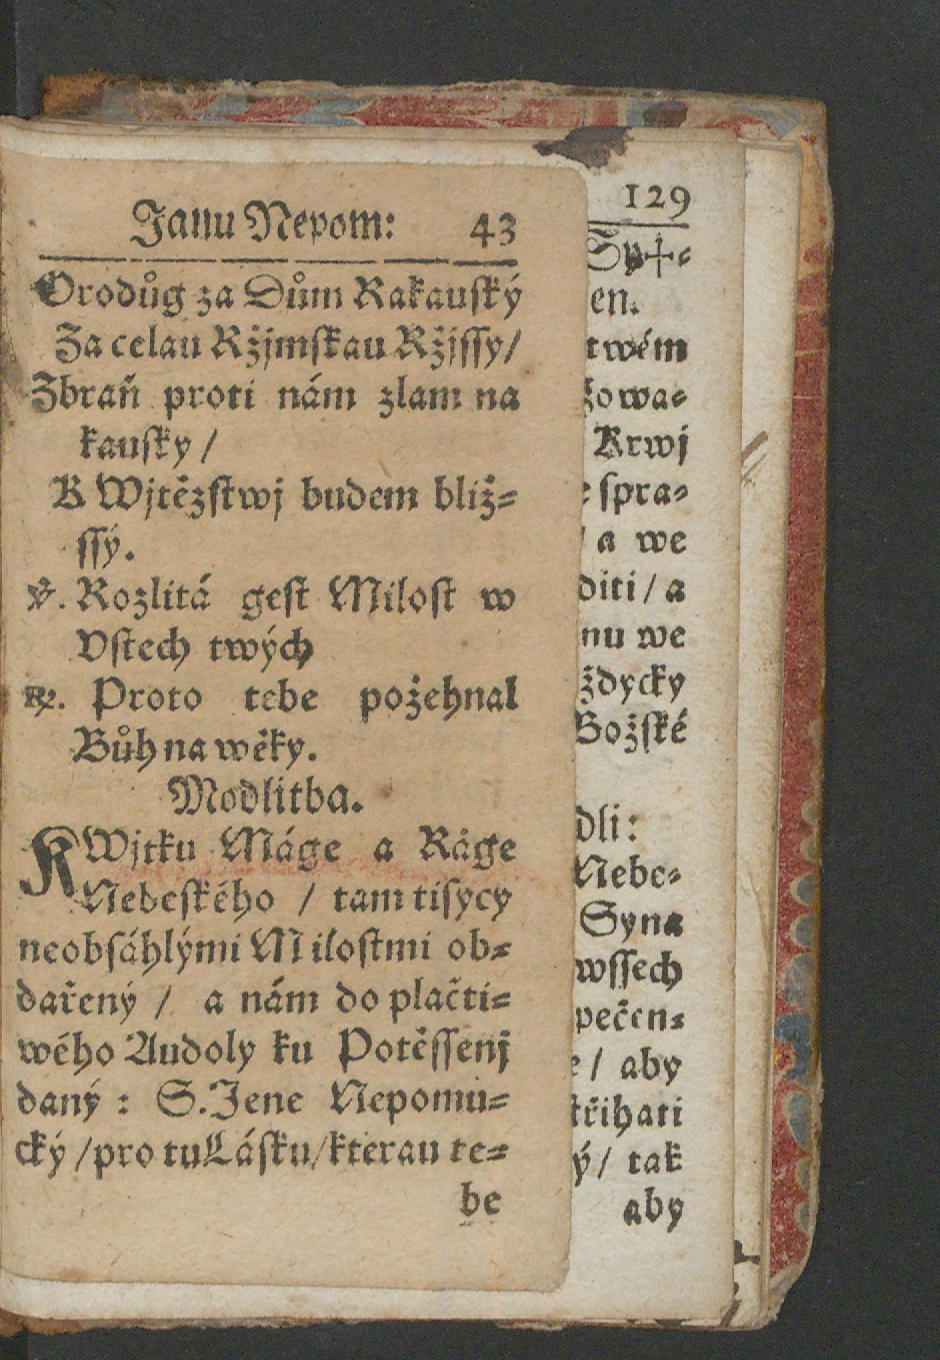 Janu Nepom: 43
Orodůg za Dům Rakauský
Za celau Ržjmskau Ržjssy/
Zbraň proti nám zlam na
kausky /
K Wjtězstwj budem bliž⸗
ssý.
℣. Rozlitá gest Milost w
Vstech twých
℟. Proto tebe požehnal
Bůh na wěky.
Modlitba.
KWjtku Máge a Ráge
Nebeského / tam tisycy
neobsáhlými Milostmi ob⸗
dařený / a nám do plačti⸗
wého Audoly ku Potěssenj
daný : S. Jene Nepomu⸗
cký /pro tu Lásku/kterau te⸗
be
129
Sy✢⸗
en.
twém
žowa⸗
Krwj
e spra⸗
/ a we
diti / a
nu we
ždycky
Božské
dli:
Nebe⸗
Syna
wssech
pečen⸗
e / aby
třihati
ý/ tak
aby